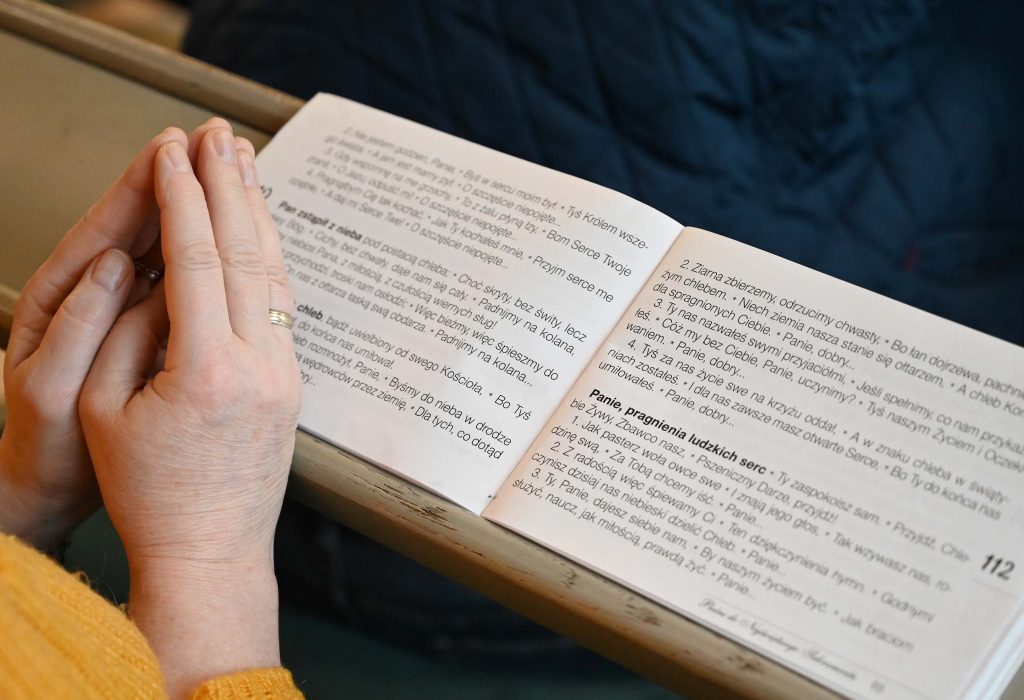 2. Nie jestem godzien, Panie, • Byś w sercu moim był. • Tyś Królem wsze-
go świata, • A jam jest marny pył. • O szczęście niepojęte...
3. Gdy wspomnę na me grzechy, • To z żalu płyną łzy. • Bom Serce Twoje
zranił, • O Jezu, odpuść mi! • O szczęście niepojęte...
4. Pragnąłbym Cię tak kochać, • Jak Ty kochałeś mnie, • Przyjm serce me
• A daj mi Serce Twe! • O szczęście niepojęte...
Pan zstąpił z nieba pod postacią chleba: • Choć skryty, bez świty, lecz
Bóg. • Cichy, bez chwały, daje nam się cały. • Padnijmy na kolana,
Pana, z miłością, z czułością wiernych sług!
przychodzi, troski nam osłodzi; • Więc bieżmy, więc śpieszmy do
z ołtarza łaską swą obdarza. • Padnijmy na kolana...
chleb, bądź uwielbiony od swego Kościoła, • Bo Tyś
do końca nas umiłował.
rozmnożył, Panie, • Byśmy do nieba w drodze
wędrowców przez ziemię, • Dla tych, co dotąd
2. Ziarna zbierzemy, odrzucimy chwasty, • Bo łan dojrzewa, pachnie
żym chlebem. • Niech ziemia nasza stanie się ołtarzem, • A chleb
dla spragnionych Ciebie. • Panie, dobry...
3. Ty nas nazwałeś swymi przyjaciółmi, • Jeśli spełnimy, co nam
łeś. • Cóż my bez Ciebie, Panie, uczynimy? • Tyś naszym Życiem i
waniem. • Panie, dobry...
4. Tyś za nas życie swe na krzyżu oddał, • A w znaku chleba w święty-
niach zostałeś. • I dla nas zawsze masz otwarte Serce, • Bo Ty do końca nas
umiłowałeś. • Panie, dobry...
Panie, pragnienia ludzkich serc • Ty zaspokoisz sam. • Przyjdź, Chle-
bie Żywy, Zbawco nasz. • Pszeniczny Darze, przyjdź!
1. Jak pasterz woła owce swe • I znają jego głos, • Tak wzywasz nas, ro-
dzinę swą, • Za Tobą chcemy iść. • Panie...
2. Z radością więc śpiewamy Ci • Ten dziękczynienia hymn. • Godnymi
czynisz dzisiaj nas niebieski dzielić Chleb. • Panie...
3. Ty, Panie, dajesz siebie nam, • By naszym życiem być. • Jak braciom
służyć, naucz, jak miłością, prawdą żyć. • Panie...
112
Pieśni do Najświętszego Sakramentu